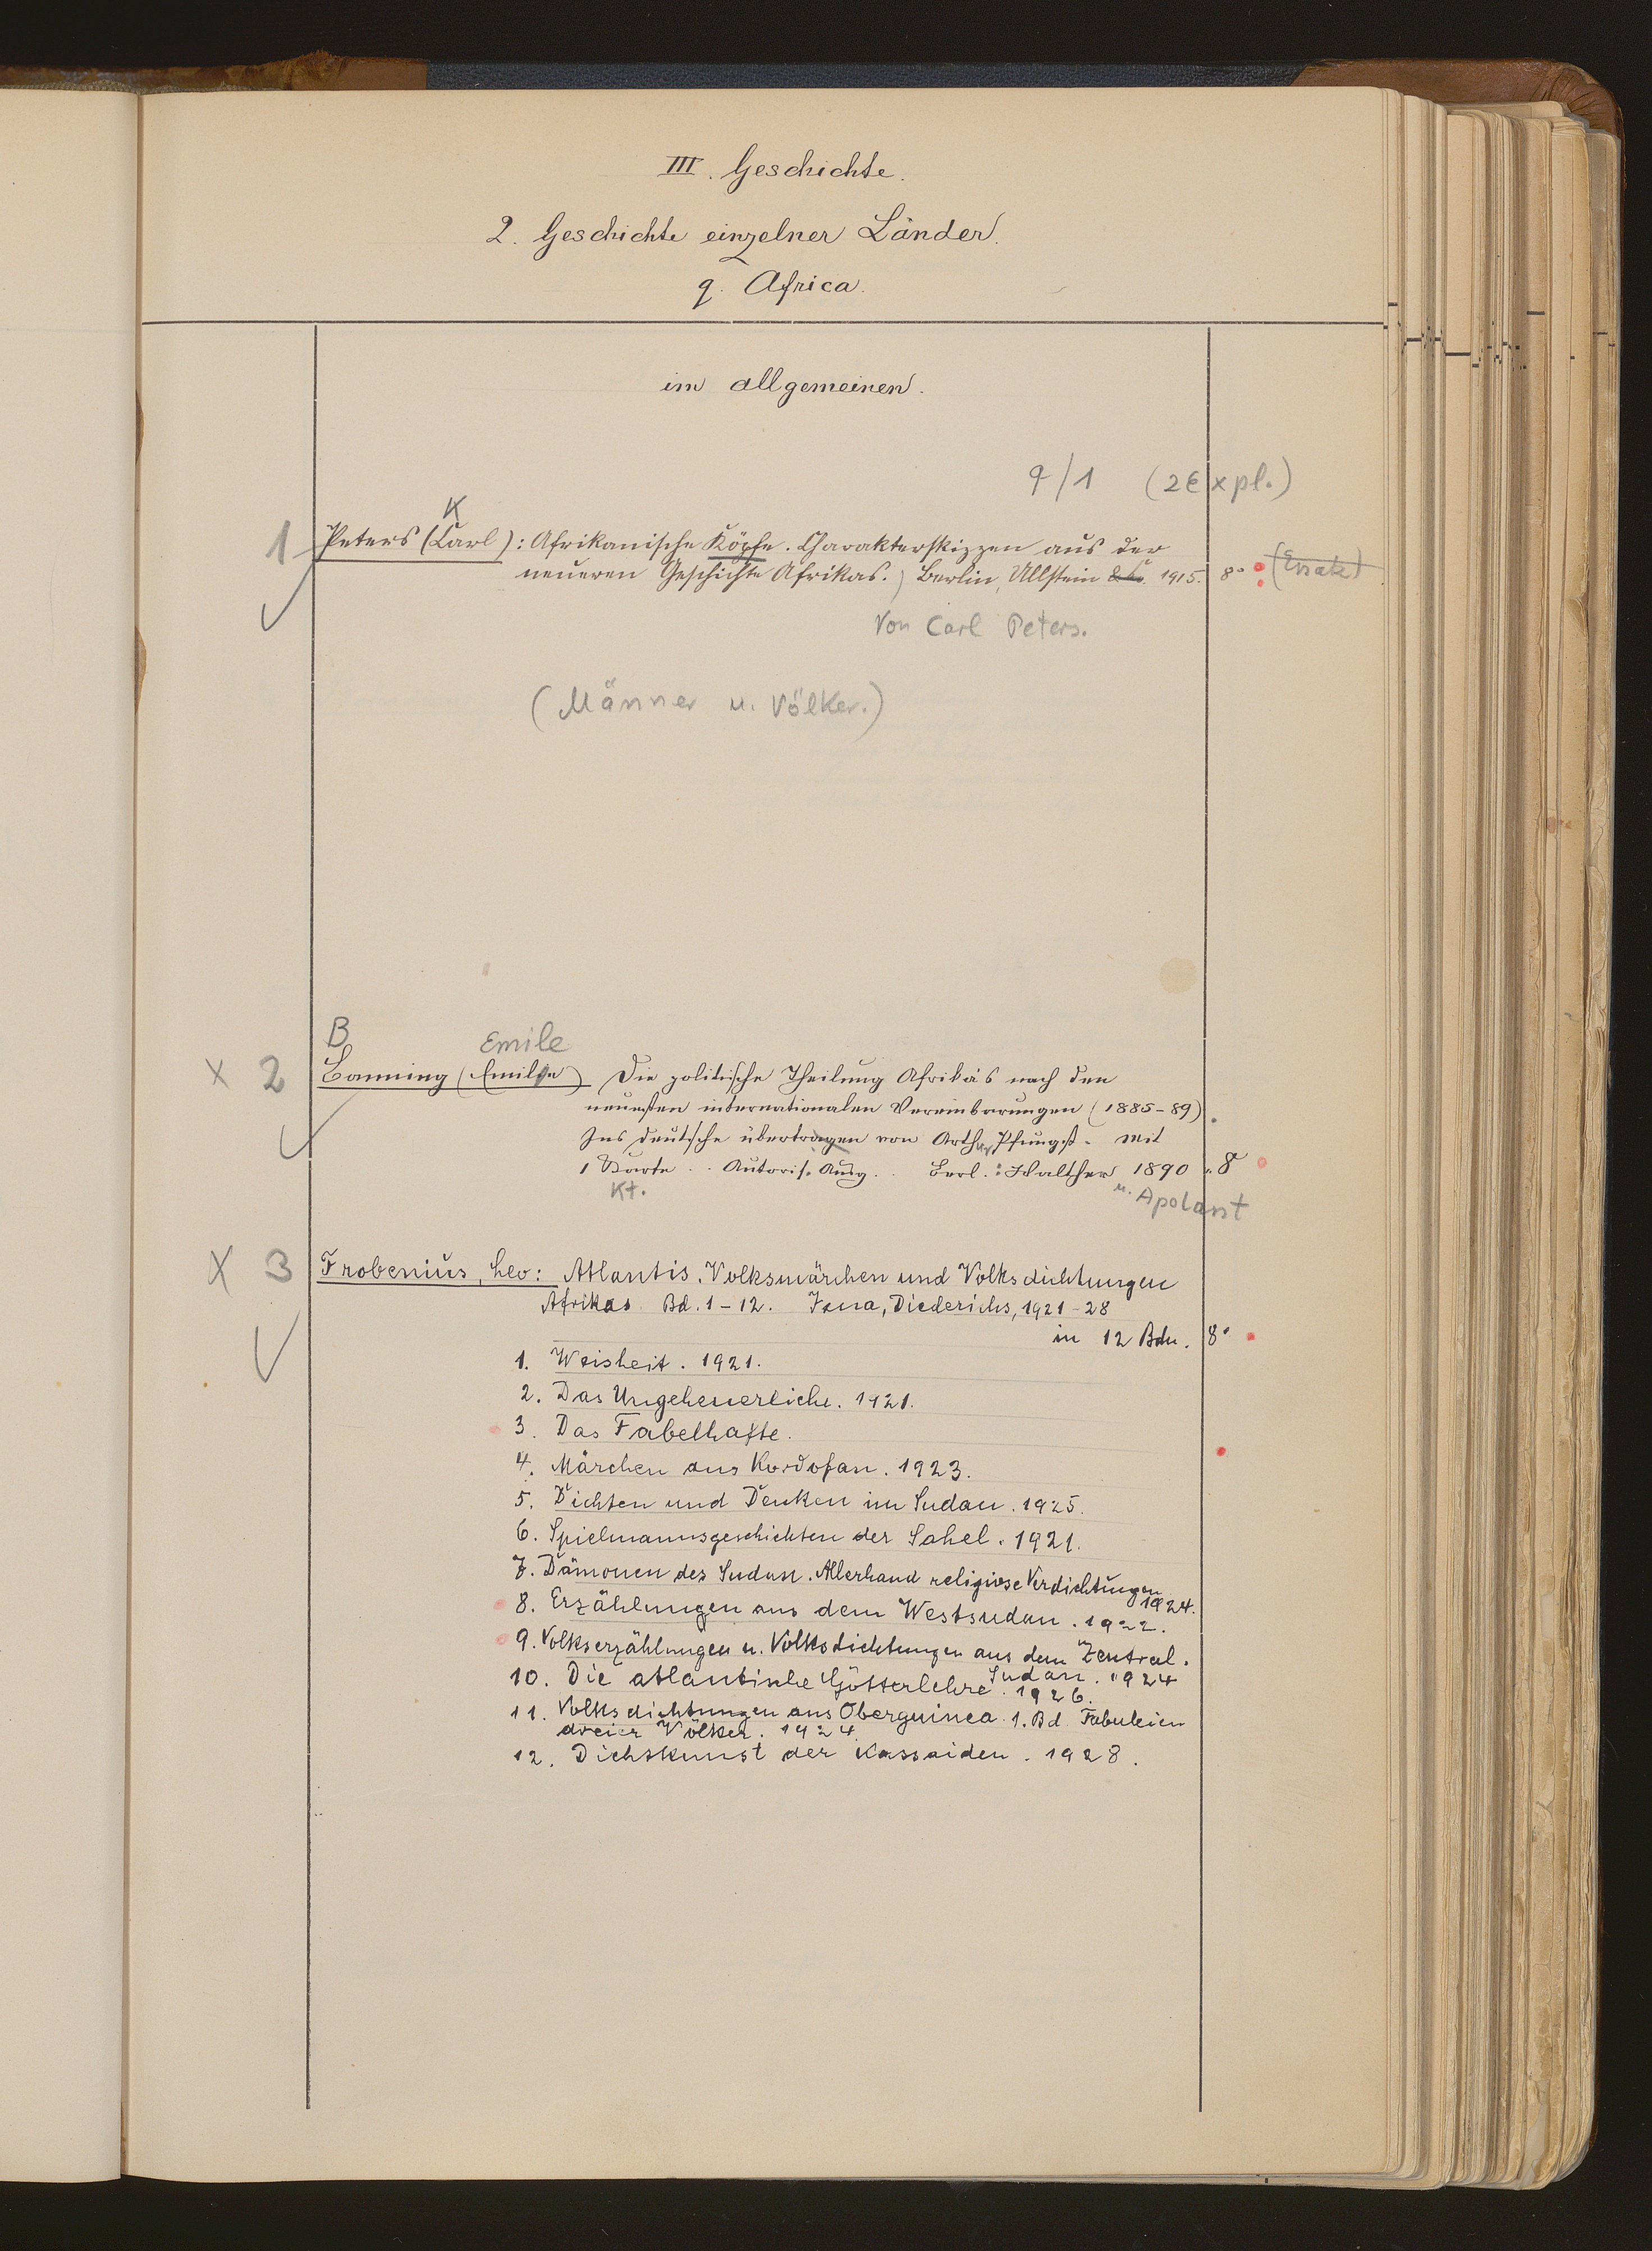 III. Geschichte.
2. Geschichte einzelner Länder.
q. Africa.
im allgemeinen.
q/1 (2 Expl.)
K
1 Peters (Carl): Afrikanische Köpfe. Charakterskizzen aus der
neueren Geschichte Afrikas.) Berlin, Ullstein 1915. 8° (Ersatz)
von Carl Peters.
(Männer u. Völker.)
B Emile
x 2 Banning (Emile) Die politische Theilung Afrika's nach den
neuesten internationalen Vereinbarungen (1885-89).
Ins deutsche übertragen von Arthur Pfungst. Mit
1 Karte .. Autoris. Ausg. .. Berl.: Walther 1890. 8
Kt. u. Apolant
x 3 Frobenius, Leo: Atlantis. Volksmärchen und Volksdichtungen
Afrikas Bd. 1-12. Jena, Diederichs, 1921-28
in 12 Bdn. 8°
1. Weisheit. 1921.
2. Das Ungeheuerliche. 1921.
3. Das Fabelhafte.
4. Märchen aus Kordofan. 1923.
5. Dichten und Denken im Sudan. 1925.
6. Spielmannsgeschichten der Sahel. 1921.
7. Dämonen des Sudan. Allerhand religiöse Verdichtungen
1924.
8. Erzählungen aus dem Westsudan. 1922.
9. Volkserzählungen u. Volksdichtungen aus dem Zentral.
Sudan. 1924
10. Die atlantische Götterlehre. 1926.
11. Volksdichtungen aus Oberguinea. 1. Bd. Fabuleien
dreier Völker. 1924.
12. Dichtkunst der Kassaiden. 1928.